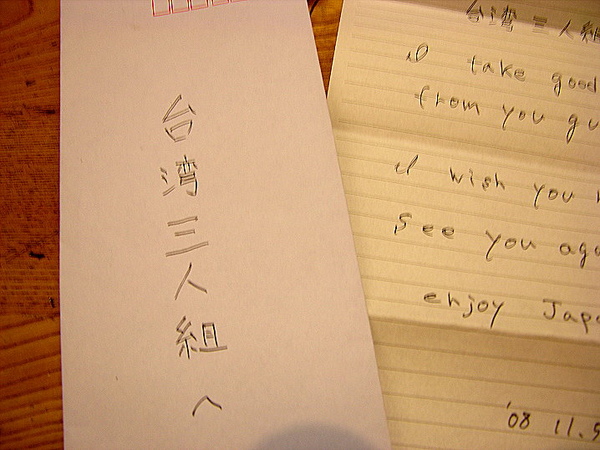 台湾三人組へ
台湾三人組
I take good
from you
I wish you
see you
enjoy
'08 11.